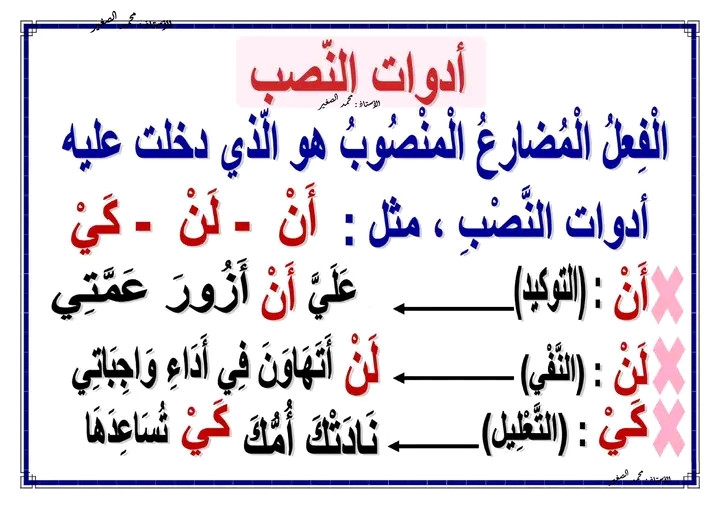 الأستاذ : محمد الصغير
أدوات النّصب
الأستاذ : محمد الصغير
الْفِعلُ الْمُضارعُ الْمنْصُوبُ هو الّذي دخلت عليه
أدوات النَّصْبِ ، مثل : أَنْ - لَنْ - كَيْ
أَنْ : (التوكيد) عَلَيَّ أَنْ أَزُورَ عَمَّتِي
لَنْ : (النَّفْي) لَنْ أَتَهَاوَنَ فِي أَدَاءِ وَاجِبَاتِي
كَيْ : (التَّعْلِيل) نَادَتْكَ أُمُّكَ كَيْ تُسَاعِدَهَا
الأستاذ : محمد الصغير